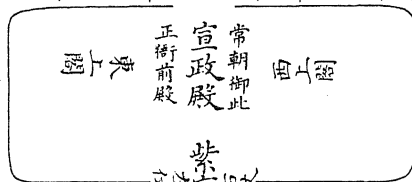 西上閣
常朝御此
宣政殿
正衙前殿
東上閣
紫